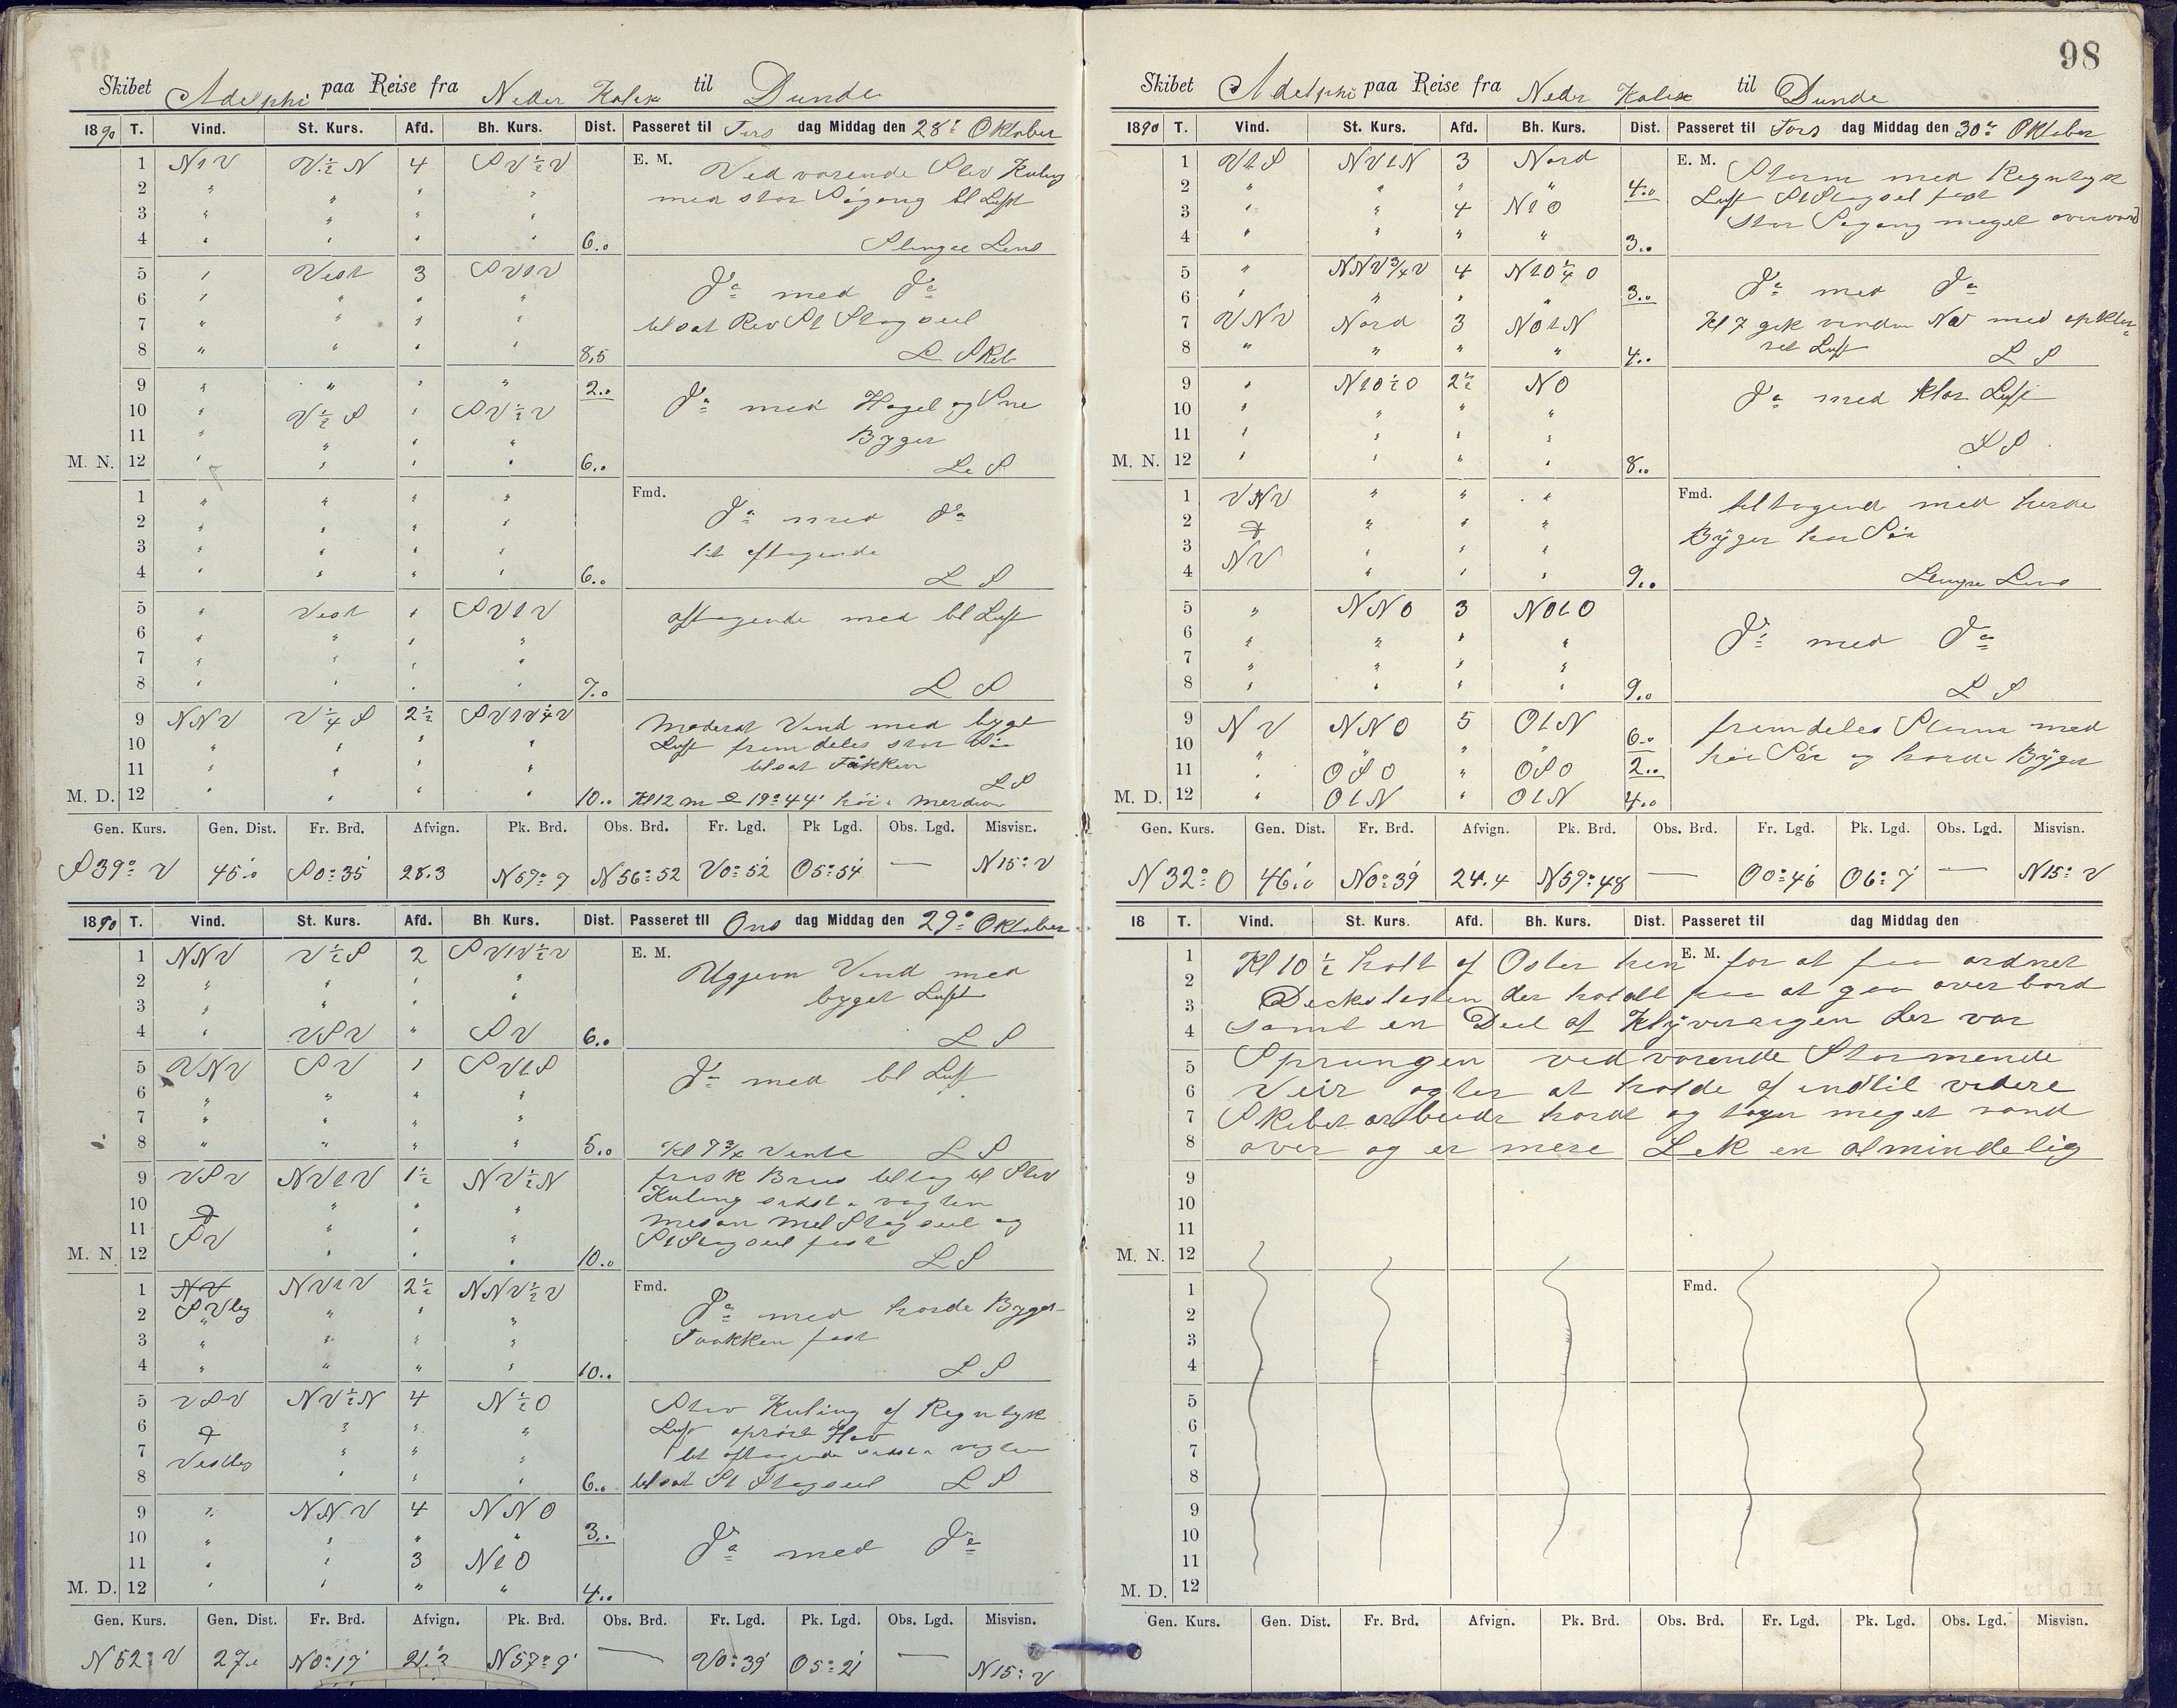 98
Skibet Adelphi paa Reise fra Neder Kalix til Dunde
1890 T. Vind. St. Kurs. Afd. Bh. Kurs. Dist. Passeret til Tors dag Middag den 28de Oktober
1 NtV V½N 4 SV½V E. M. Vedvarende Stiv Kuling
2 " " " " med stor Søgang bl Luft
3 " " " "
4 " " " " 6.. Slinger Lens
5 " Vest 3 SVtV Do med Do
6 " " " "
7 " " " " tilsat Rev St Stagseil
8 " " " " 8,5 L Skib
9 " " " " 2..
10 " V½S " SV½V Do med Hagel og Sne
11 " " " " Byger
M. N. 12 " " " " 6.. L S
1 " " " " Fmd. Do med Do
2 " " " "
3 " " " " lit aftagende
4 " " " " 6.. L S
5 " Vest " SVtV aftagende med bl Luft
6 " " " "
7 " " " "
8 " " " " 7.. L S
9 NNV V¼S 2½ SVtV¼V Moderat Vind med byget
10 " " " " Luft fremdeles stor Sø
11 " " " " tilsat Fåkken L S
M. D. 12 " " " " 10.. Kl 12 m 19° 44' høi i merdian
Gen. Kurs. Gen. Dist. Fr. Brd. Afvign. Pk. Brd. Obs. Brd. Fr. Lgd. Pk Lgd. Obs. Lgd. Misvisn.
S 39° V 45.0 S 0° 35' 28.3 N 57° 7 N 56° 52 V 0° 52' O 5° 54' — N 15° V
1890 T. Vind. St. Kurs. Afd. Bh. Kurs. Dist. Passeret til Ons dag Middag den 29de Oktober
1 NNV V½S 2 SVtV½V E. M. Ugjevn Vind med
2 " " " " byget Luft
3 " " " "
4 " VSV " SV 6.. L S
5 VNV SV " SVtS Do med bl Luft
6 " " " "
7 " " " "
8 " " " " 5.0 Kl 7¾ Vente L S
9 VSV NVtV 1½ NV½N frisk Bris tiltog til Stiv
10 " " " Kuling sidst a vagten
11 SV " " " Mesan Mel Stagseil og
M. N. 12 " " " 10.. St Stagseil fast L S
1 NV NVtV 2½ NNV½V Fmd. Do med harde Byger
2 SVleg " " "
3 " " " " Faakken fast
4 " " " " 10.. L S
5 VSV NV½N 4 N½O Stiv Kuling af Regntyk
6 " " " Luft oprørt Hav
7 Vestleg " " " lit aftagende sidst a vagten
8 " " " 6.. tilsat St Stagseil L S
9 " NNV 4 NNO
10 " " " " 3.. Do med Do
11 " " 3 NtO
M. D. 12 " " " " 4..
Gen. Kurs. Gen. Dist. Fr. Brd. Afvign. Pk. Brd. Obs. Brd. Fr. Lgd. Pk. Lgd. Obs. Lgd. Misvisn.
N 52° V 27. N 0° 17' 21.2 N 57° 9' — V 0° 39' O 5° 21' — N 15° V
Skibet Adelphi paa Reise fra Neder Kalix til Dunde
1890 T. Vind. St. Kurs. Afd. Bh. Kurs. Dist. Passeret til Tors dag Middag den 30te Oktober
1 VtS NVtN 3 Nord E. M. Storm med Regntyk
2 " " " " 4.0 Luft St Stagseil fast
3 " " 4 NtO Stor Søgang meget overvand
4 " " " " 3..
5 " NNV¾V 4 NtO¼O Do med Do
6 " " " " 3..
7 VNV Nord 3 NOtN Kl 7 gik vinden NV med opkla-
8 " " " " 4.. ret Luft L S
9 " NtO½O 2½ NO Do med klar Luft
10 " " " "
11 " " " " L S
M. N. 12 " " " " 8..
1 VNV " " " Fmd. tiltagend med harde
2 " " " Byger har Søe
3 NV " " "
4 " " " 9.. Lempe Lens
5 " NNO 3 NOtO
6 " " " " Do med Do
7 " " " "
8 " " " " 9.. L S
9 NV NNO 5 OtN 6.0 fremdeles Storm med
10 " " " " høi Søe og harde Byger
11 " OSO " OSO 2..
M. D. 12 " OtN " OtN 4.0
Gen. Kurs. Gen. Dist. Fr. Brd. Afvign. Pk. Brd. Obs. Brd. Fr. Lgd. Pk. Lgd. Obs. Lgd. Misvisn.
N 32° O 46.0 N 0° 39' 24.4 N 57° 48 — O 0° 46' O 6° 7' — N 15° V
18 T. Vind. St. Kurs. Afd. Bh. Kurs. Dist. Passeret til dag Middag den
1 Kl 10½ holt af Oster hen E. M. for at faa ordnet
2 Deckslasten der holdt paa at gaa overbord
3
4 samt en Deel af Klyverargen der var
5 Sprungen vedvarende Stormende
6 Veir agter at holde af indtil videre
7 Skibet arbeide hardt og tager meget vand
8 over og er mere Lek en almindelig
9
10
11
M. N. 12
1 Fmd.
2
3
4
5
6
7
8
9
10
11
M. D. 12
Gen. Kurs. Gen. Dist. Fr. Brd. Afvign. Pk. Brd. Obs. Brd. Fr. Lgd. Pk. Lgd. Obs. Lgd. Misvisn.